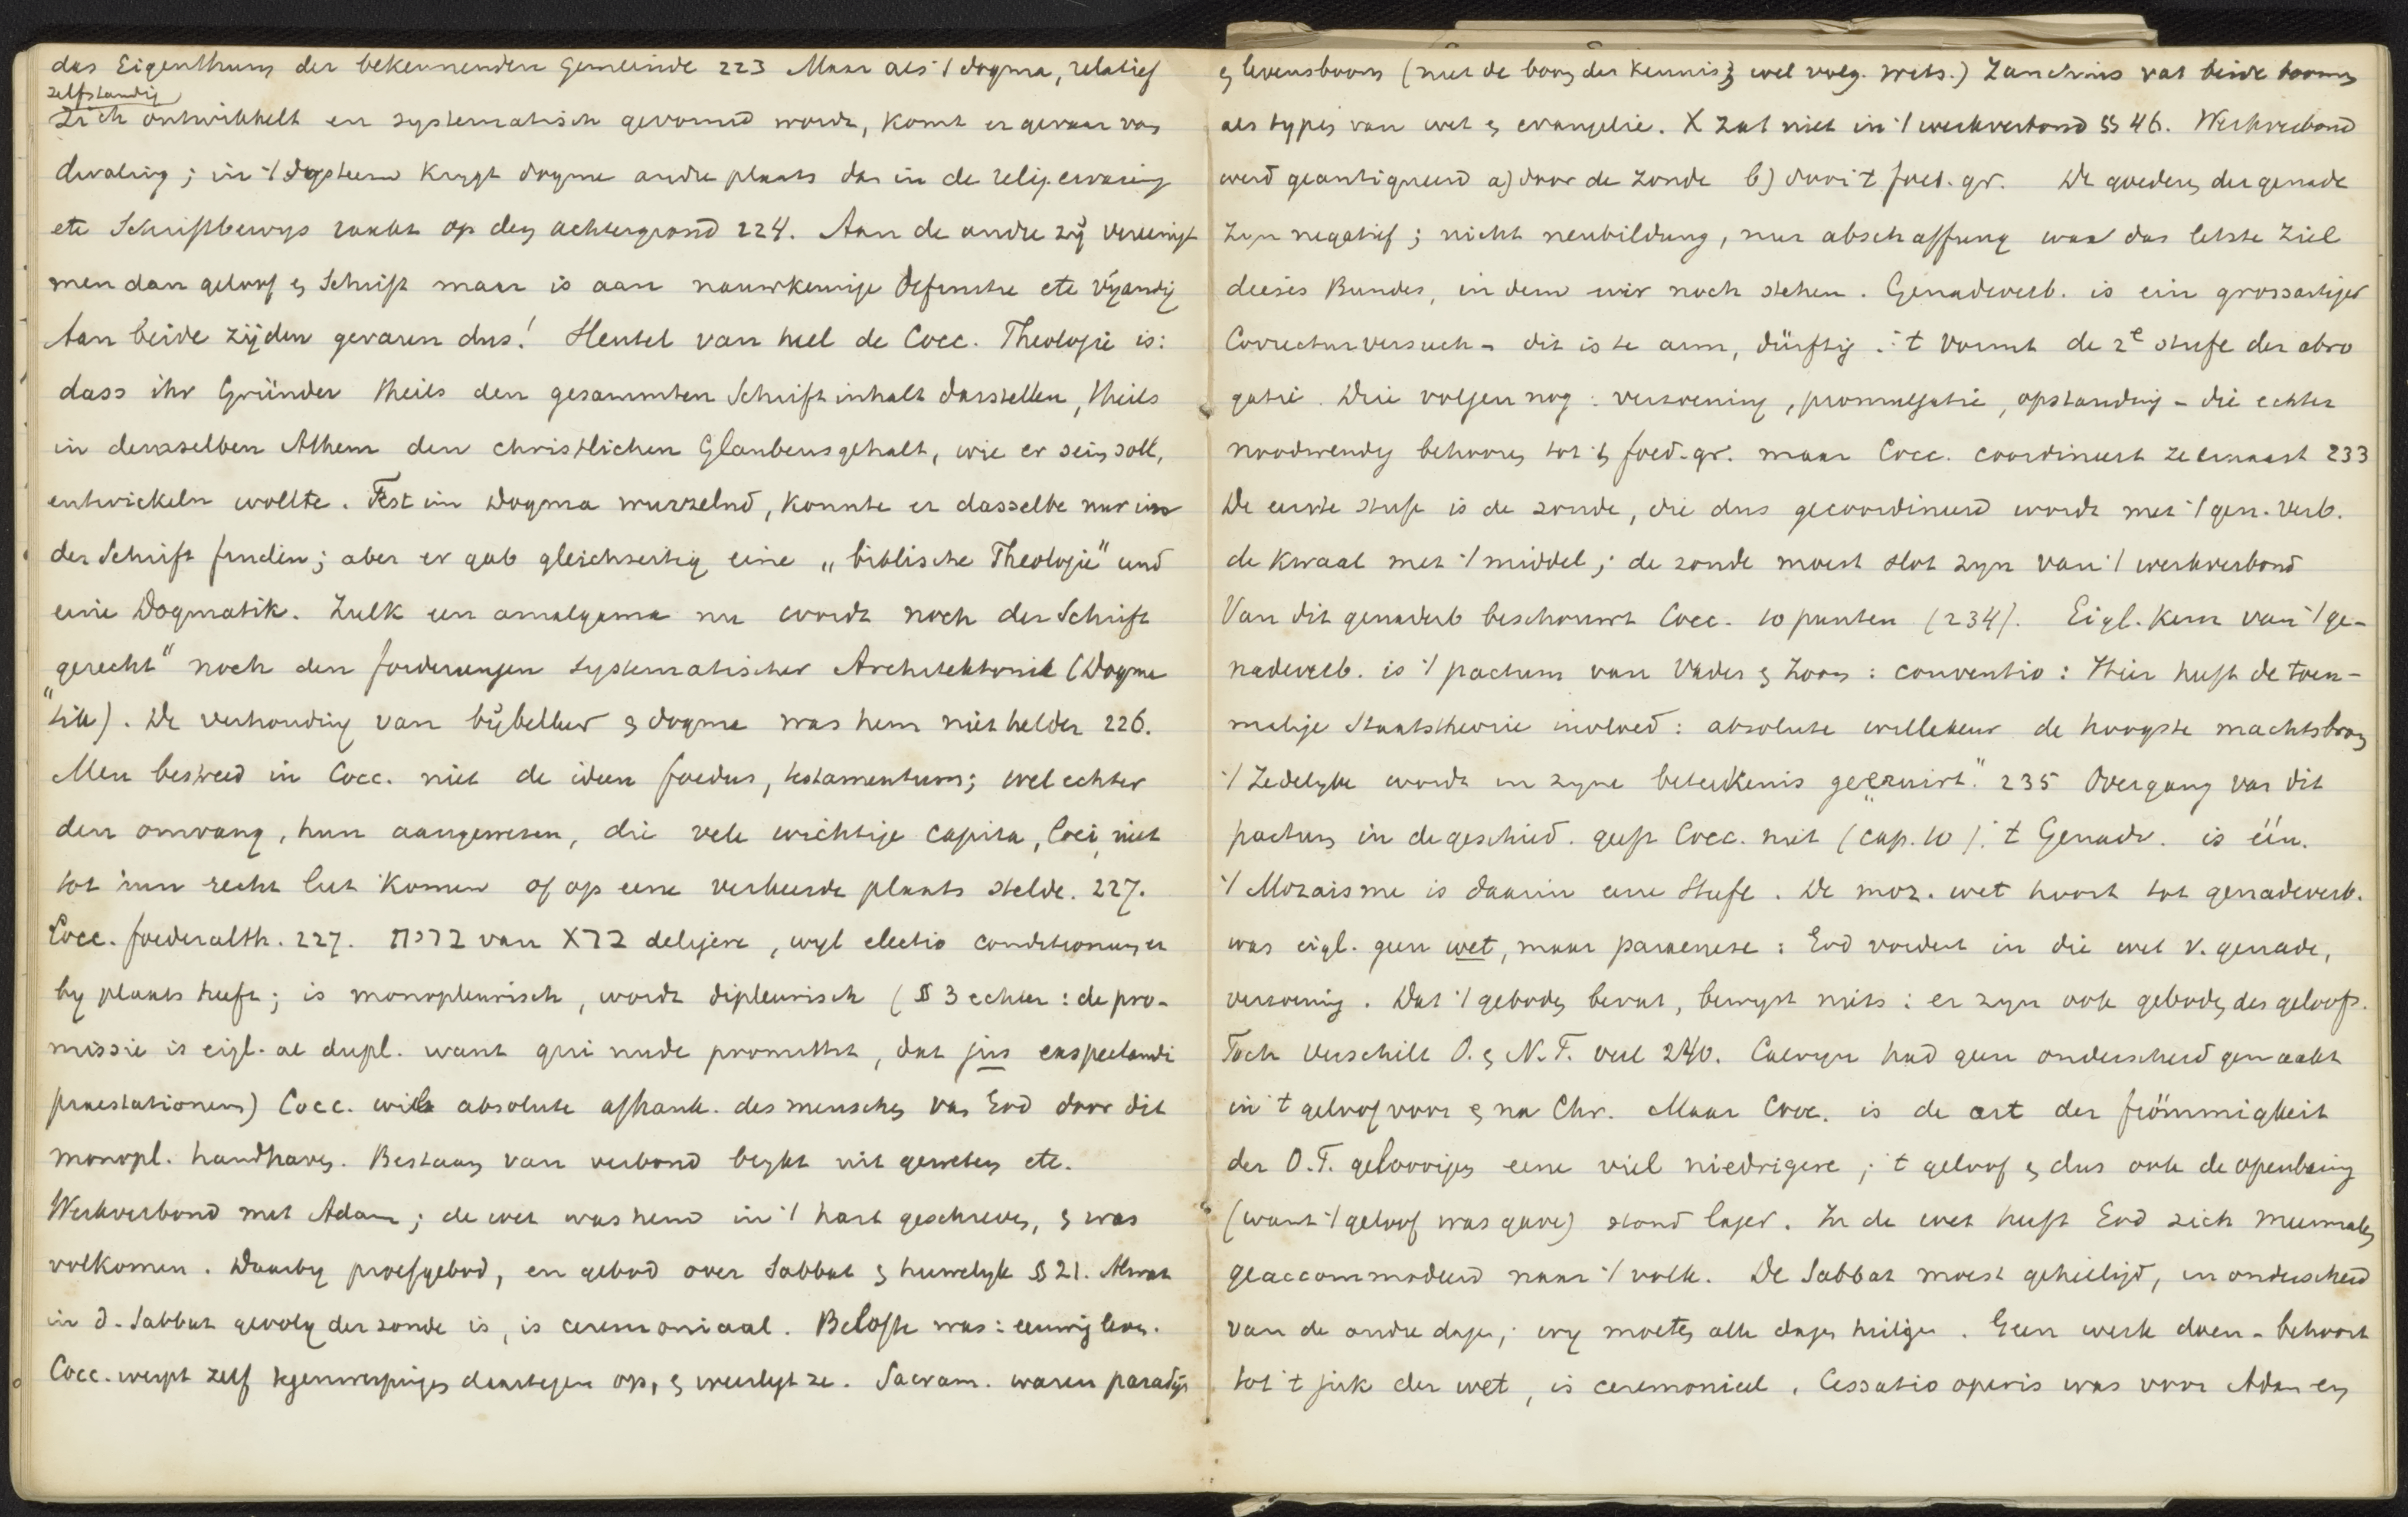 das Eigenthum der bekennenden Gemeinde 223 Maar als 't dogma, relatief
zelfstandig
zich ontwikkelt en systematisch gevormd wordt, komt er gevaar van
dwaling; in 't systeem krygt dogma andre plaats dan in de relig. ervaring
etc Schriftbewys raakt op den achtergrond 224. Aan de andre zij vereenigt
men dan geloof en Schrift maar is aan nauwkeurige Definitie etc vijandig
Aan beide zijden gevaren dus! Sleutel van heel de Cocc. Theologie is:
dass ihr Gründer theils den gesammten Schriftinhalt darstellen, theils
in demselben Athem den christlichen Glaubensgehalt, wie er sein soll,
entwickeln wollte. Fest im Dogma wurzelnd, konnte er dasselbe nur in
der Schrift finden; aber er gab gleichzeitig eine „biblische Theologie" und
eine Dogmatik. Zulk een amalgama nu wordt noch der Schrift
„gerecht" noch den forderungen systematischer Architektonik (Dogma
tik). De verhouding van bijbelleer en dogma was hem niet helder 226.
Men bestreed in Cocc. niet de ideen foedus, testamentum; wel echter
den omvang, hun aangewezen, die vele wichtige capita, loci, niet
tot hun recht liet komen of op eene verkeerde plaats stelde. 227.
Cocc. foederalth. 227. ברית van ברא deligere, wyl electio conditionum er
by plaats heeft; is monopleurisch, wordt dipleurisch (§ 3 echter: de pro-
missie is eigl. al dupl. want qui nude promittit, dat jus expectandi
praestationem) Cocc. wil absolute afhank. des menschen van God door dit
monopl. handhaven. Bestaan van verbond blykt uit geweten etc.
Werkverbond met Adam; de wet was hem in 't hart geschreven, en was
volkomen. Daarby proefgebod, en gebod over Sabbat en huwelyk § 21. Alwat
in d. Sabbat gevolg der zonde is, is ceremoniaal. Belofte was: eeuwig leven.
Cocc. werpt zelf tegenwerpingen daartegen op, en weerlegt ze. Sacram. waren paradijs
en levensboom (niet de boom der kennis; wel volg. Wits.) Zanchius vat beide boomen
als types van wet en evangelie. X zat niet in 't werkverbond §§ 46. Werkverbond
werd geantiqueerd a) door de zonde b) door 't foed. gr. De goederen der genade
zyn negatief; nicht neubildung, nur abschaffung war das letzte Ziel
dieses Bundes, in dem wir noch stehen. Genadeverb. is ein grossartiger
Correcturversuch – dit is te arm, dürftig. 't vormt de 2e stufe der abro
gatie. Drie volgen nog: verzoening, promulgatie, opstanding – die echter
noodwendig behooren tot 't foed. gr. maar Cocc. coordineert ze ernaast 233
De eerste stufe is de zonde, die dus gecoordineerd wordt met 't gen. verb.
de kwaal met 't middel; de zonde moest slot zyn van 't werkverbond
Van dit genadeverb beschouwt Cocc. 10 punten (234). Eigl. kern van 't ge-
nadeverb. is 't pactum van Vader en Zoon: conventio: Hier heeft de toen-
malige Staatstheorie invloed: absolute willekeur de hoogste machtsbron
't Zedelyke wordt in zyne beteekenis „geëxuirt." 235 Overgang van dit
pactum in de geschied. geeft Cocc. niet (cap. 10). 't Genadv. is één.
't Mozaisme is daarin eene Stufe. De moz. wet hoort tot genadeverb.
was eigl. geen wet, maar paraenese: God vordert in die wet v. genade,
verzoening. Dat 't geboden bevat, bewyst niets: er zyn ook geboden des geloofs.
Toch verschilt O. en N.T. veel 240. Calvyn had geen onderscheid gemaakt
in 't geloof voor en na Chr. Maar Cocc. is de art der frömmigkeit
der O.T. geloovigen eene viel niedrigere; 't geloof en dus ook de openbaring
(want 't geloof was gave) stond lager. In de wet heeft God zich meermalen
geaccommodeerd naar 't volk. De Sabbat moest geheiligd, in onderscheid
van de andre dagen; wy moeten alle dagen heiligen. Geen werk doen – behoort
tot 't juk der wet, is ceremonieel. Cessatio operis was voor Adam en